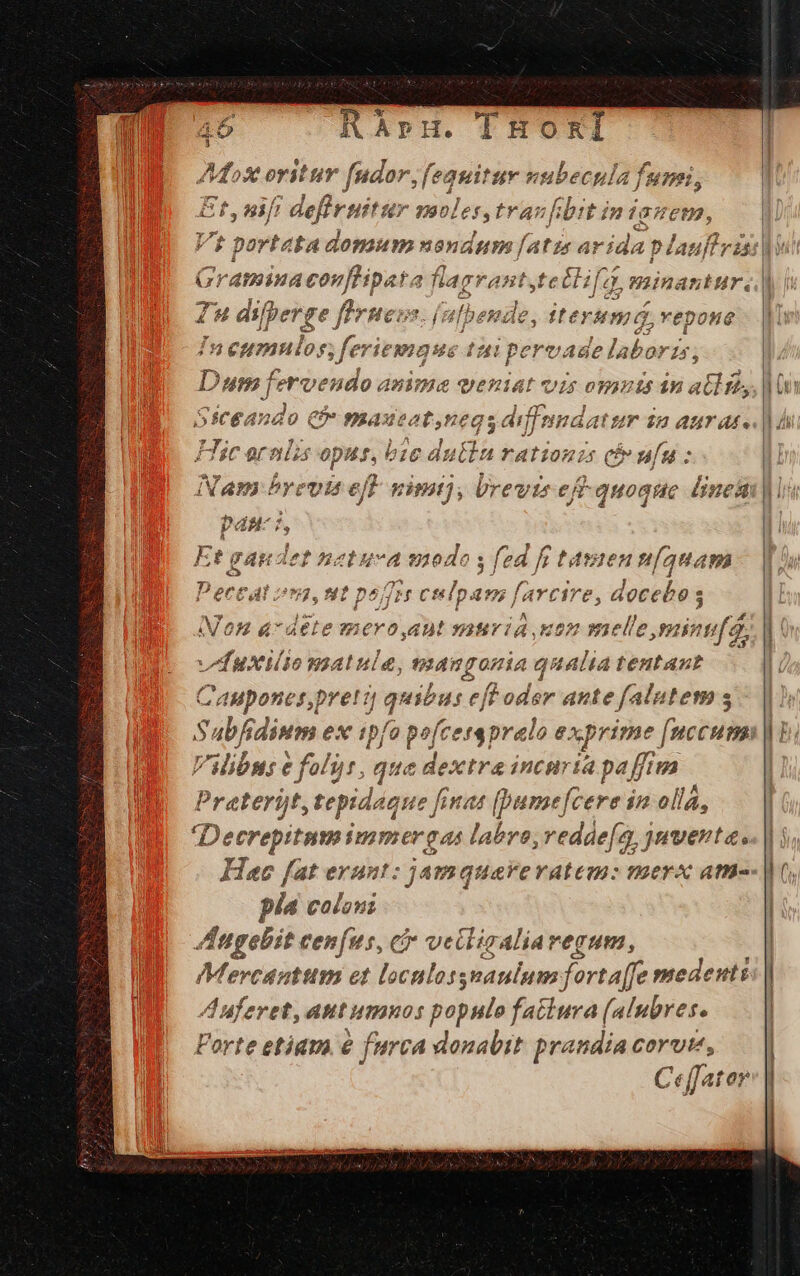 46 RAPH. THORI
Mox oritur ſudor, ſequitur nubecula fumi,
Et, niſi deſtruitur moles, tranſibit in ignem,
Vt portata domum nondum ſatis arida plauſtris
Gramina conſtipata flagrant, tectiſq́, minantur.
Tu diſperge ſtrueis, ſuſpende, iterumq́, repone
In cumulos; ſeriemque tui pervade laboris,
Dum fervendo anima veniat vis omnis in actũ,
Siccando & maneat, neq; diffundatur in auras.
Hic oculis opus, hic ductu rationis & uſu:
Nam brevis eſt nimij, brevis eſt quoque linea
pauci,
Et gaudet natura modo; ſed ſi tamen uſquam
Peccatum, ut poſſis culpam farcire, docebo;
Non ardēte mero, aut muriâ, non melle, minuſq́;
Auxilio matulæ, mangonia qualia tentant
Caupones, pretij quibus eſt odor ante ſalutem;
Subſidium ex ipſo poſces; prælo exprime ſuccum
Vilibus è folijs, quæ dextræ incuria paſſim
Præterijt, tepidaque ſinas ſpumeſcere in ollâ,
Decrepitum immergas labro, reddeſq́, juventæ.
Hæc ſat erunt: jam quære ratem: merx am-
pla coloni
Augebit cenſus, & vectigalia regum,
Mercantum et loculos; naulum fortaſſe medenti
Auferet, autumnos populo factura ſalubres.
Forte etiam è furca donabit prandia corvis,
Ceſſator